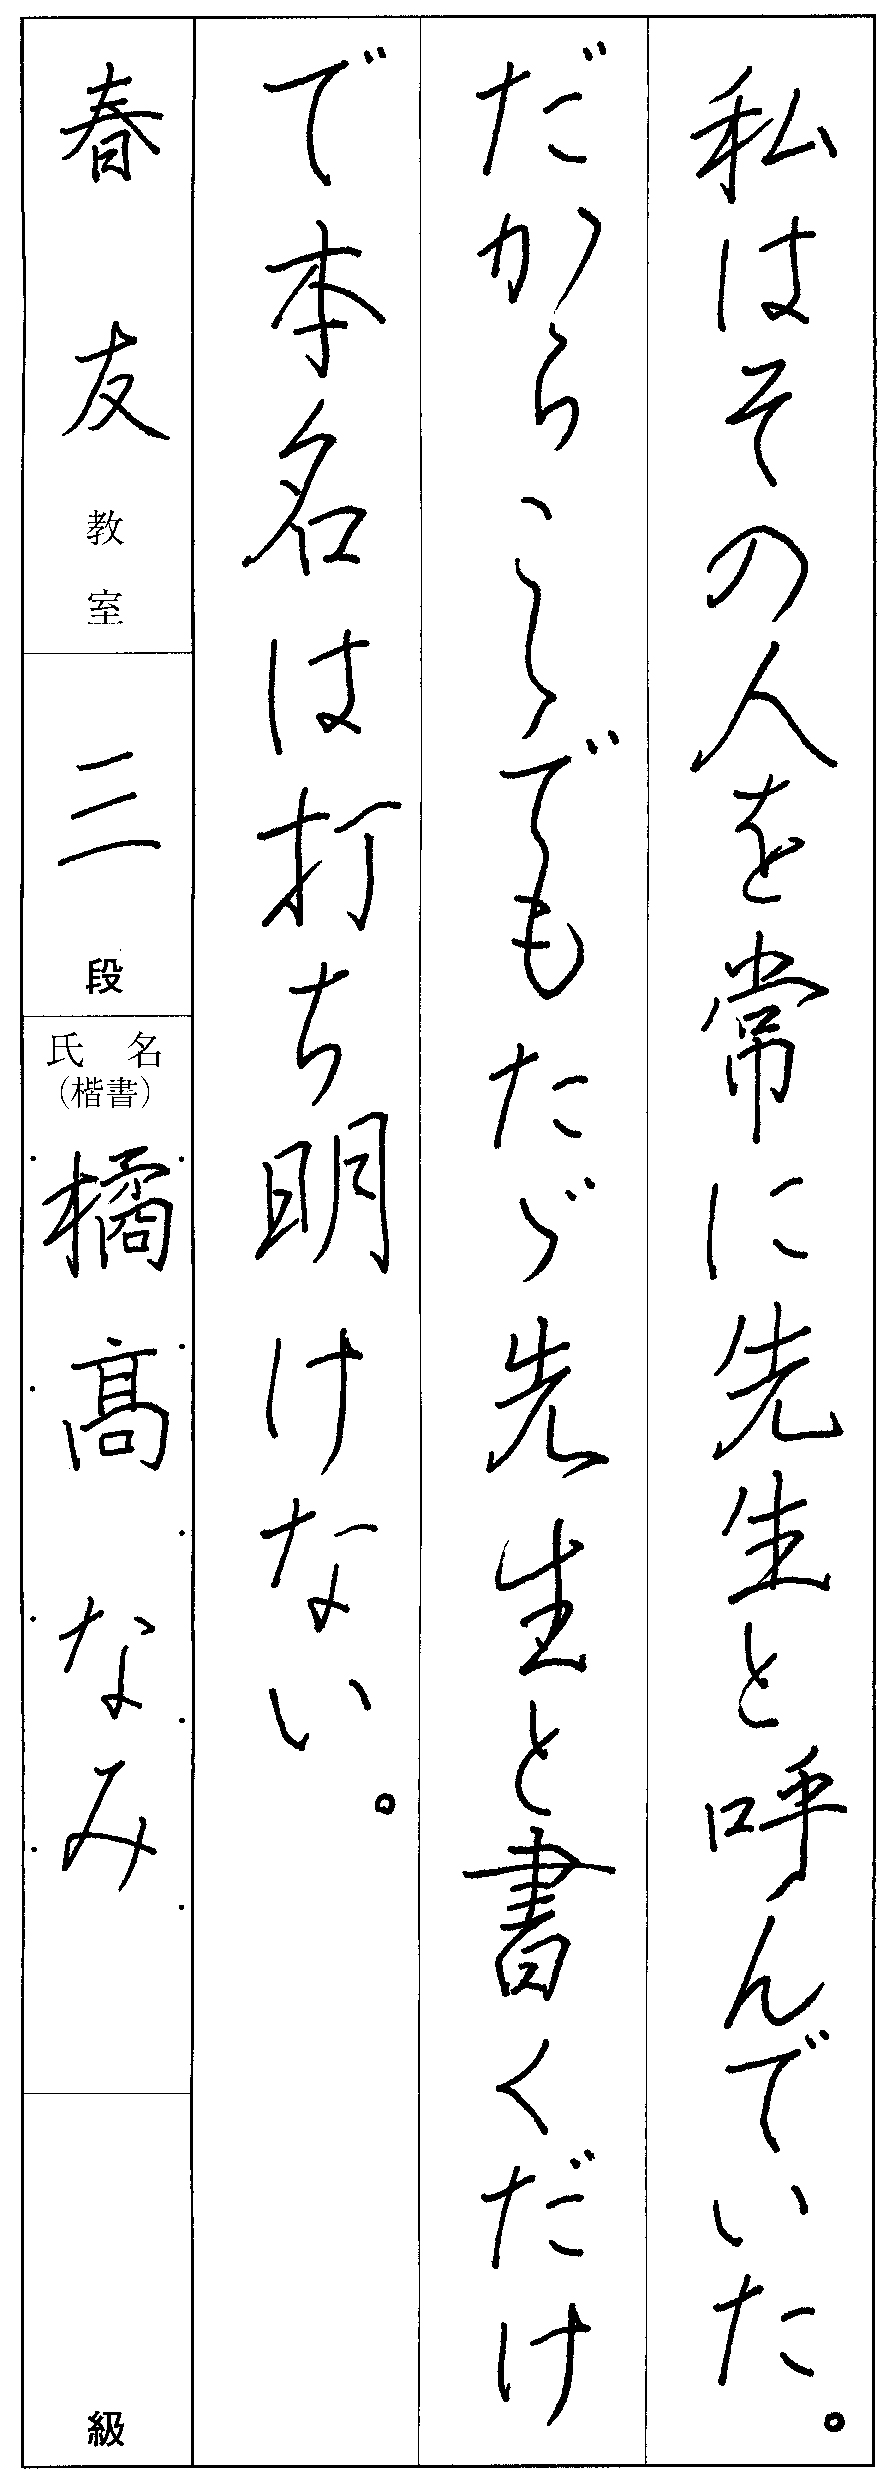 私はその人を常に先生と呼んでいた。
だからこゝでもたゞ先生と書くだけ
で本名は打ち明けない。
春友教室
三段
氏名
（楷書）
橘髙なみ
級